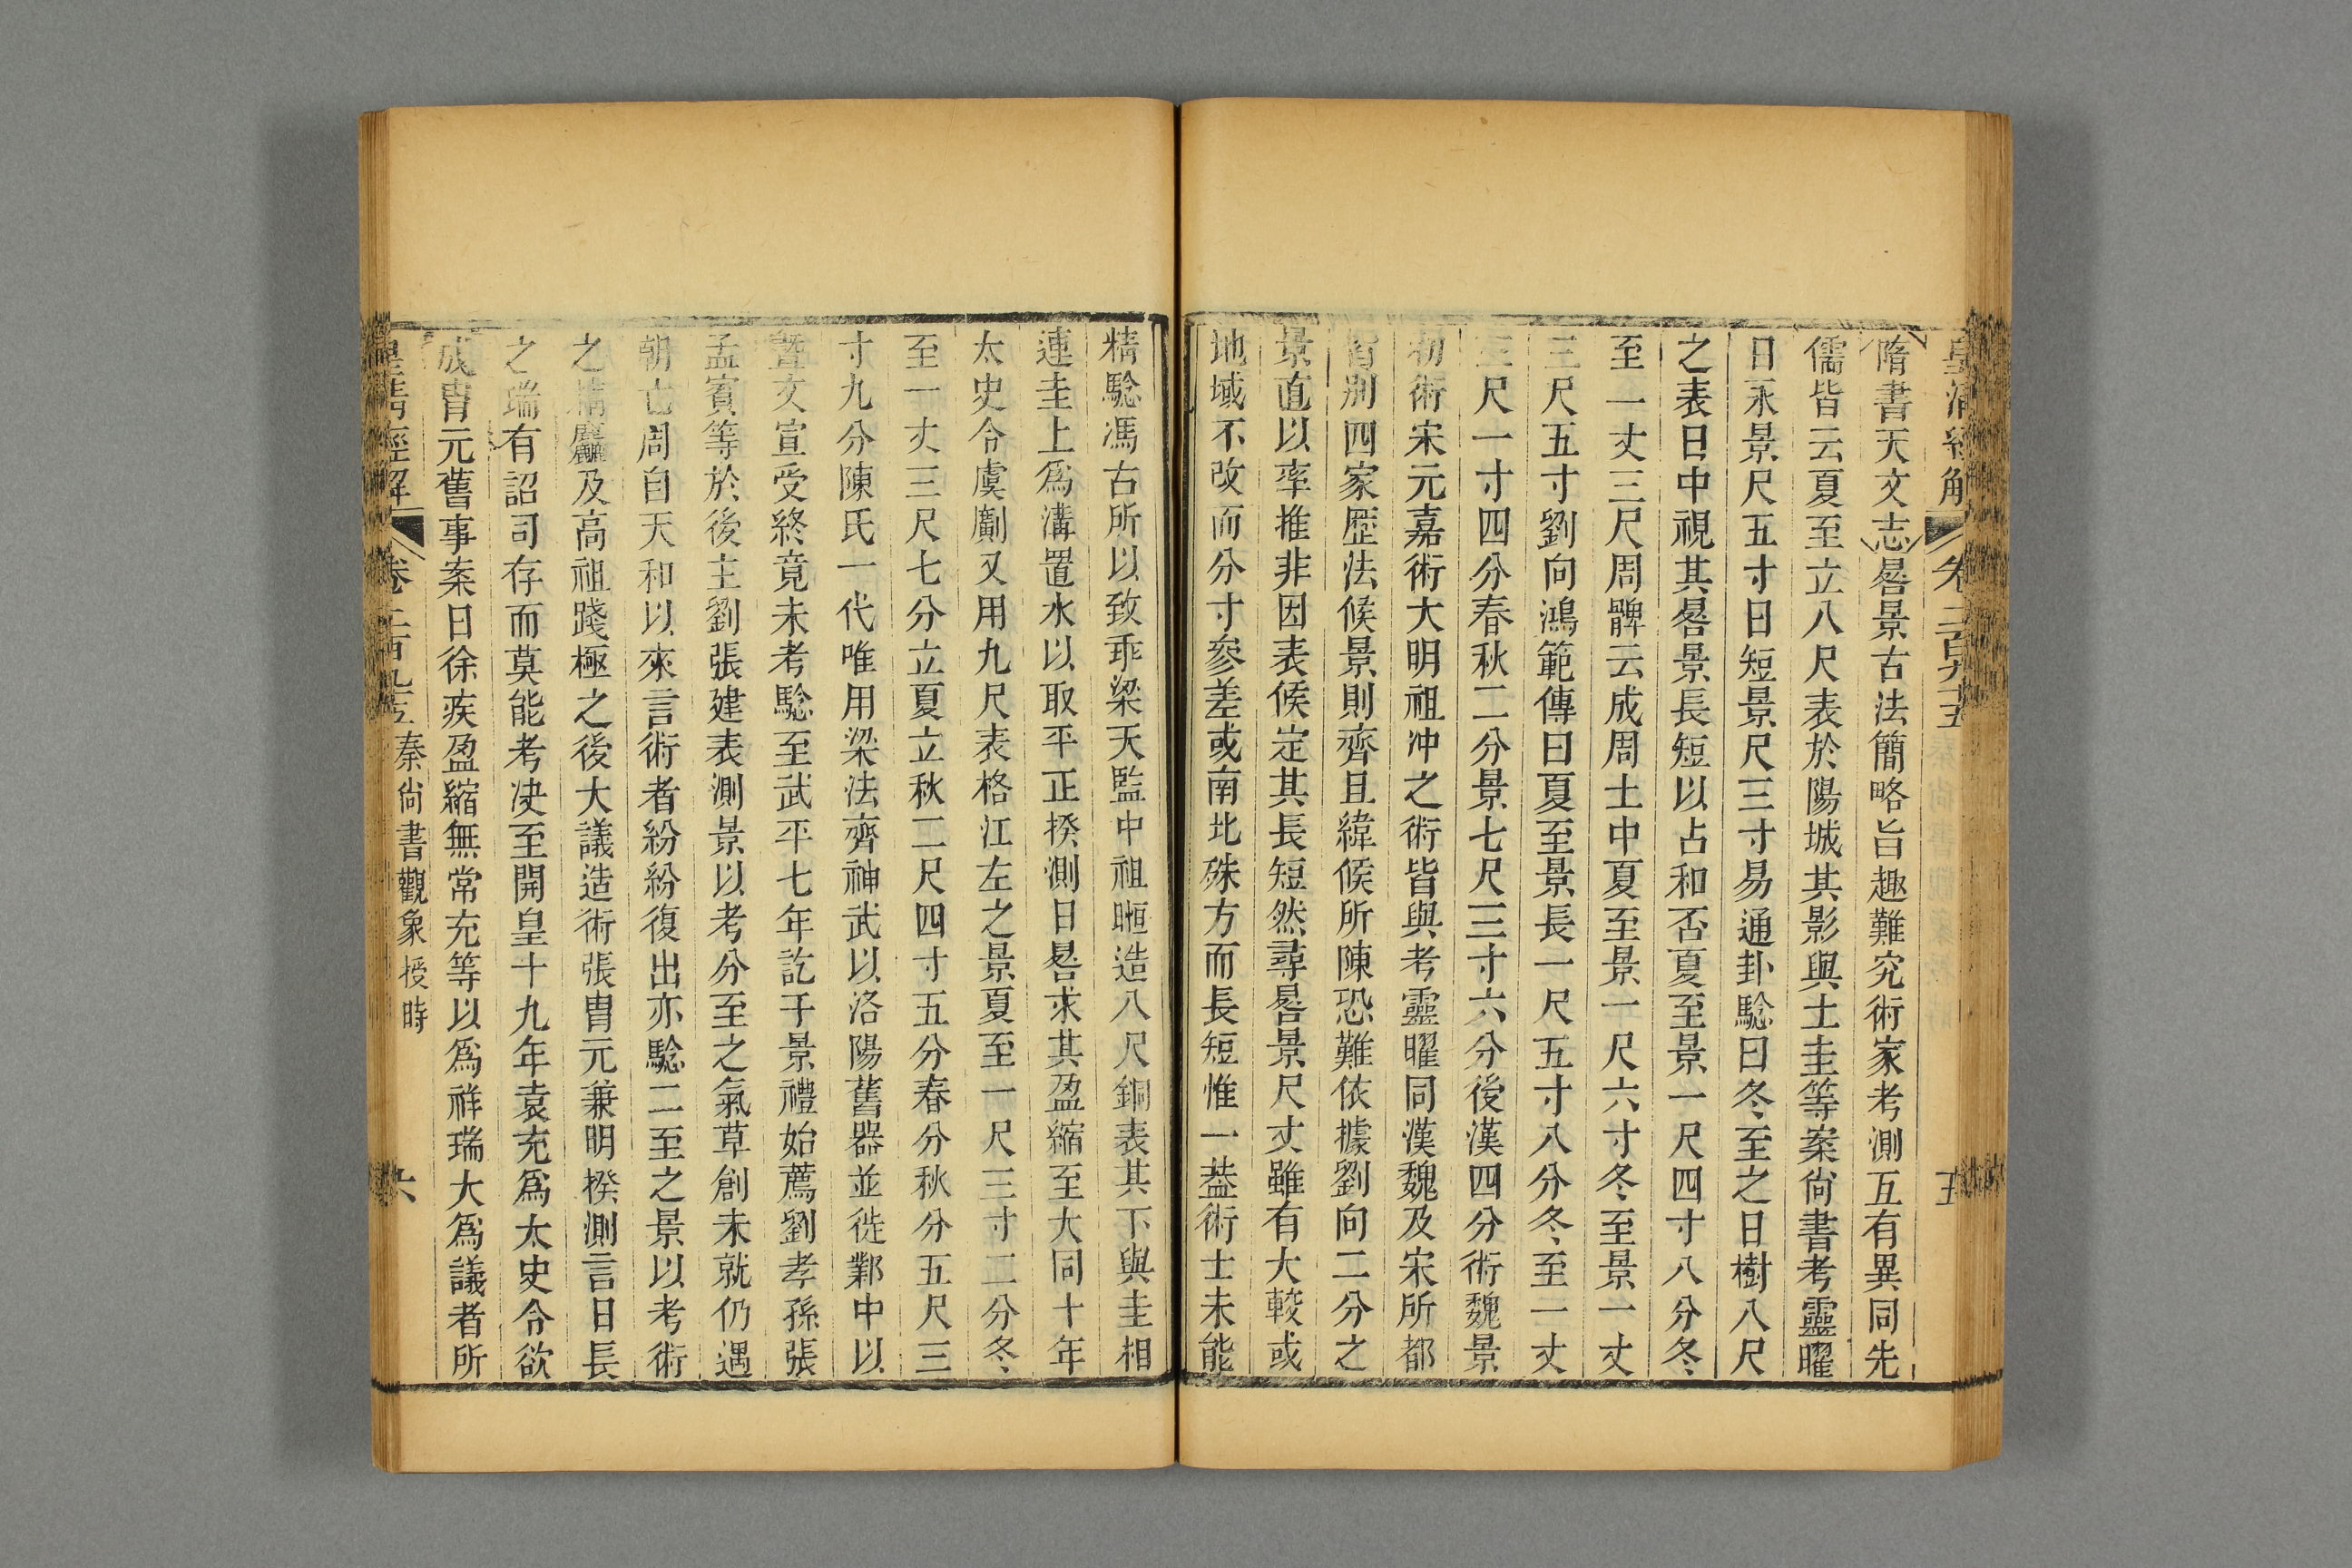 皇清經解 卷二百九十五 五
隋書天文志晷景古法簡略旨趣難究術家考測互有異同先
儒皆云夏至立八尺表於陽城其影與土圭等案尙書考靈曜
日永景尺五寸日短景尺三寸易通卦驗曰冬至之日樹八尺
之表日中視其晷景長短以占和否夏至景一尺四寸八分冬
至一丈三尺周髀云成周土中夏至景一尺六寸冬至景一丈
三尺五寸劉向鴻範傳曰夏至景長一尺五寸八分冬至一丈
三尺一寸四分春秋二分景七尺三寸六分後漢四分術魏景
初術宋元嘉術大明祖沖之術皆與考靈曜同漢魏及宋所都
皆別四家歷法候景則齊且緯候所陳恐難依據劉向二分之
景直以率推非因表候定其長短然尋晷景尺丈雖有大較或
地域不改而分寸參差或南北殊方而長短惟一葢術士未能
精驗馮古所以致乖梁天監中祖暅造八尺銅表其下與圭相
連圭上爲溝置水以取平正揆測日晷求其盈縮至大同十年
太史令虞𠠎又用九尺表格江左之景夏至一尺三寸二分冬
至一丈三尺七分立夏立秋二尺四寸五分春分秋分五尺三
寸九分陳氏一代唯用梁法齊神武以洛陽舊器並徙鄴中以
曁文宣受終竟未考驗至武平七年訖干景禮始薦劉孝孫張
孟賓等於後主劉張建表測景以考分至之氣草創未就仍遇
朝亡周自天和以來言術者紛紛復出亦驗二至之景以考術
之精麤及高祖踐極之後大議造術張胄元兼明揆測言日長
之瑞有詔司存而莫能考決至開皇十九年袁充爲太史令欲
成胄元舊事案日徐疾盈縮無常充等以爲祥瑞大爲議者所
皇淸經解 卷二百九十五 秦尙書觀象授時 六